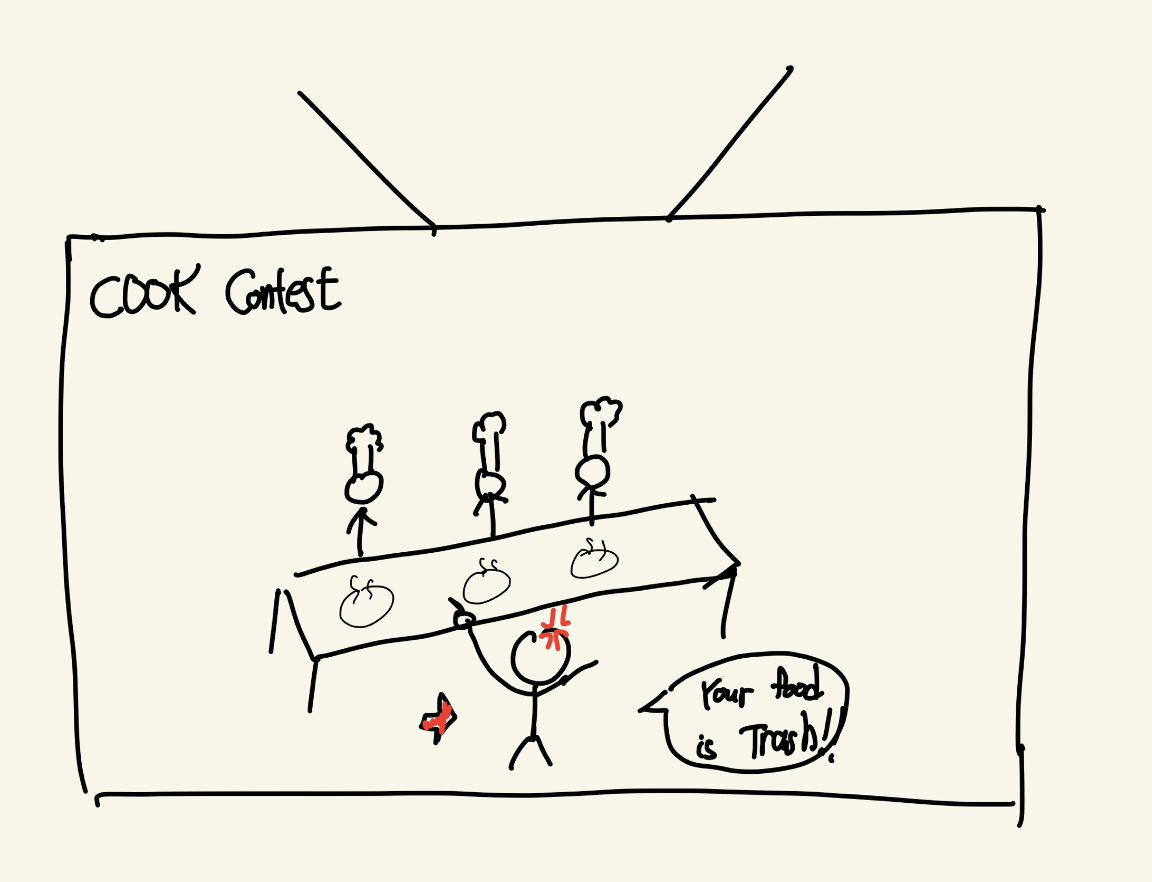 COOK Contest
Your food
is Trash!!